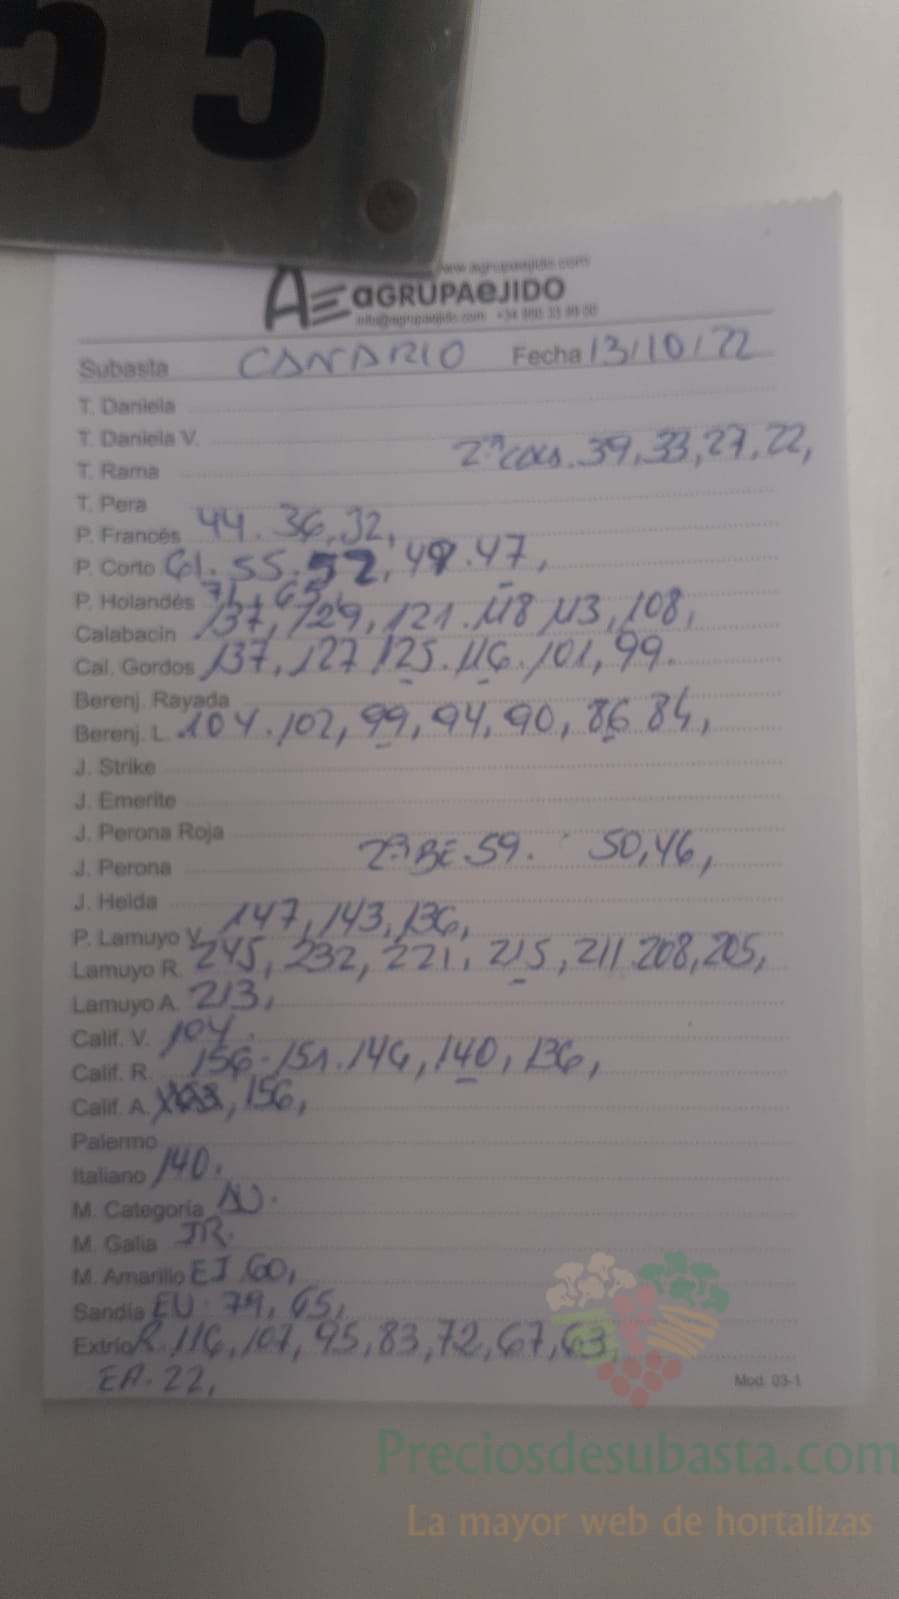 55
www.agrupaejido.com
AE aGRUPAeJIDO
info@agrupaejido.com
Subasta CANARIO Fecha 13/10/22
T. Daniela
T. Daniela V.
2ª COLS. 39, 33, 27, 22,
T. Rama
T. Pera
P. Francés 44. 36, 32,
P. Corto Col. 55. 52, 49. 47,
P. Holandés 71, 65,
Calabacín 137, 129, 121. 118 113, 108,
Cal. Gordos 137, 127 125. 116. 101, 99.
Berenj. Rayada
Berenj. L. 104. 102, 99, 94, 90, 86 84,
J. Strike
J. Emerite
J. Perona Roja
2ª BE. 59. 50, 46,
J. Perona
J. Helda
P. Lamuyo V. 147, 143, 136,
Lamuyo R. 245, 232, 221, 215, 211 208, 205,
Lamuyo A. 213,
Calif. V. 104.
Calif. R. 156-151. 146, 140, 136,
Calif. A. 156,
Palermo
Italiano 140.
M. Categoría
M. Galia JR.
M. Amarillo EJ 60,
Sandía EU. 79, 65,
Extrio R. 116, 107, 95, 83, 72, 67, 63,
EA. 22,
Mod. 03-1
Preciosdesubasta.com
La mayor web de hortalizas